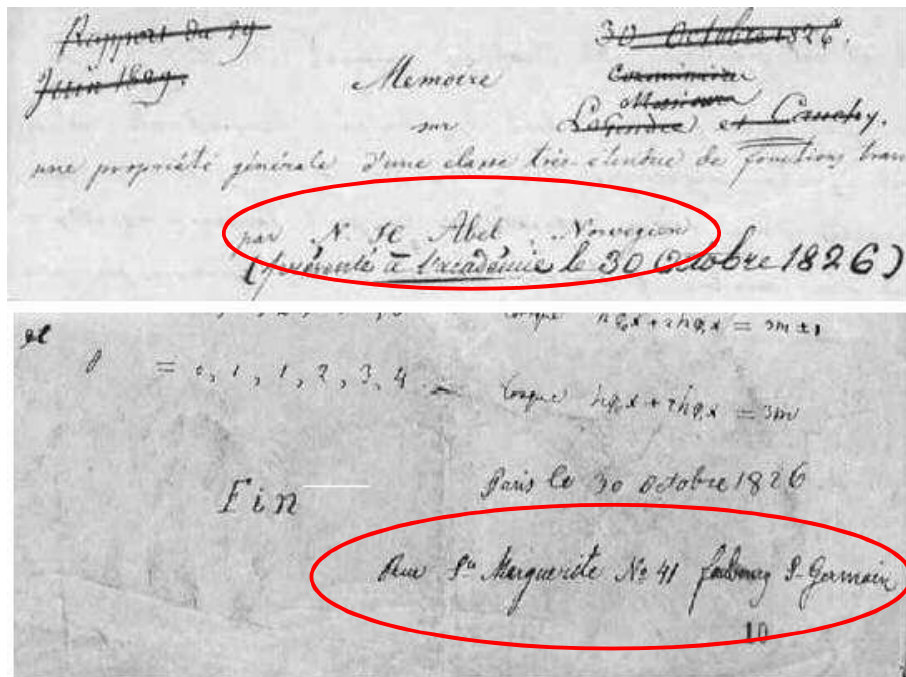 Rapport du 19
Juin 1829.
30 Octobre 1826.
Commissaires
Messieurs
LeGendre et Cauchy.
Memoire
sur
une propriété générale d'une classe très-étendue de fonctions tran
par N. H. Abel, Norvegien
(présenté à l'académie le 30 Octobre 1826)
et
= 0, 1, 1, 2, 3, 4
lorsque
= 3m ± 1
lorsque
= 3m
Fin
Paris le 30 Octobre 1826
Rue Ste Marguerite No 41 faubourg St Germain
10